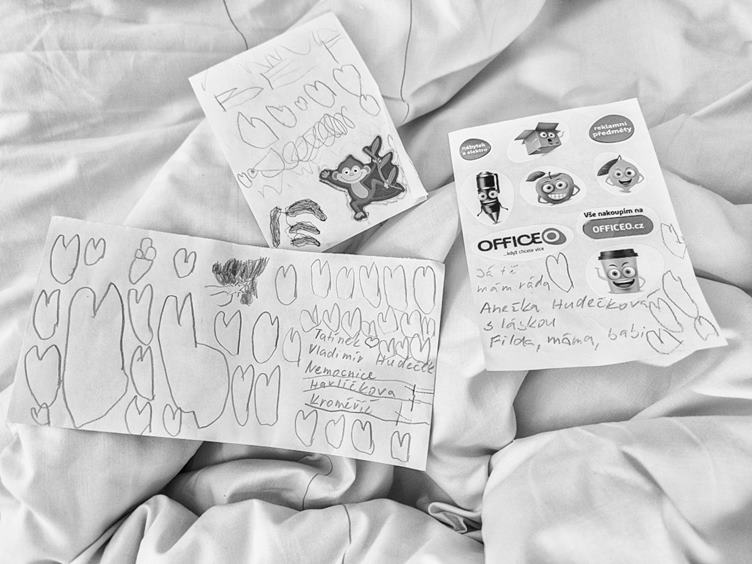 nábytek
a elektro
reklamní
předměty
Vše nakoupím na
OFFICEO.cz
OFFICEO
...když chcete více
Já tě
mám ráda
Anežka Hudečková
s láskou
Filda, máma, babi
Tatínek
Vladimír Hudeček
Nemocnice
Havlíčkova
Kroměříž